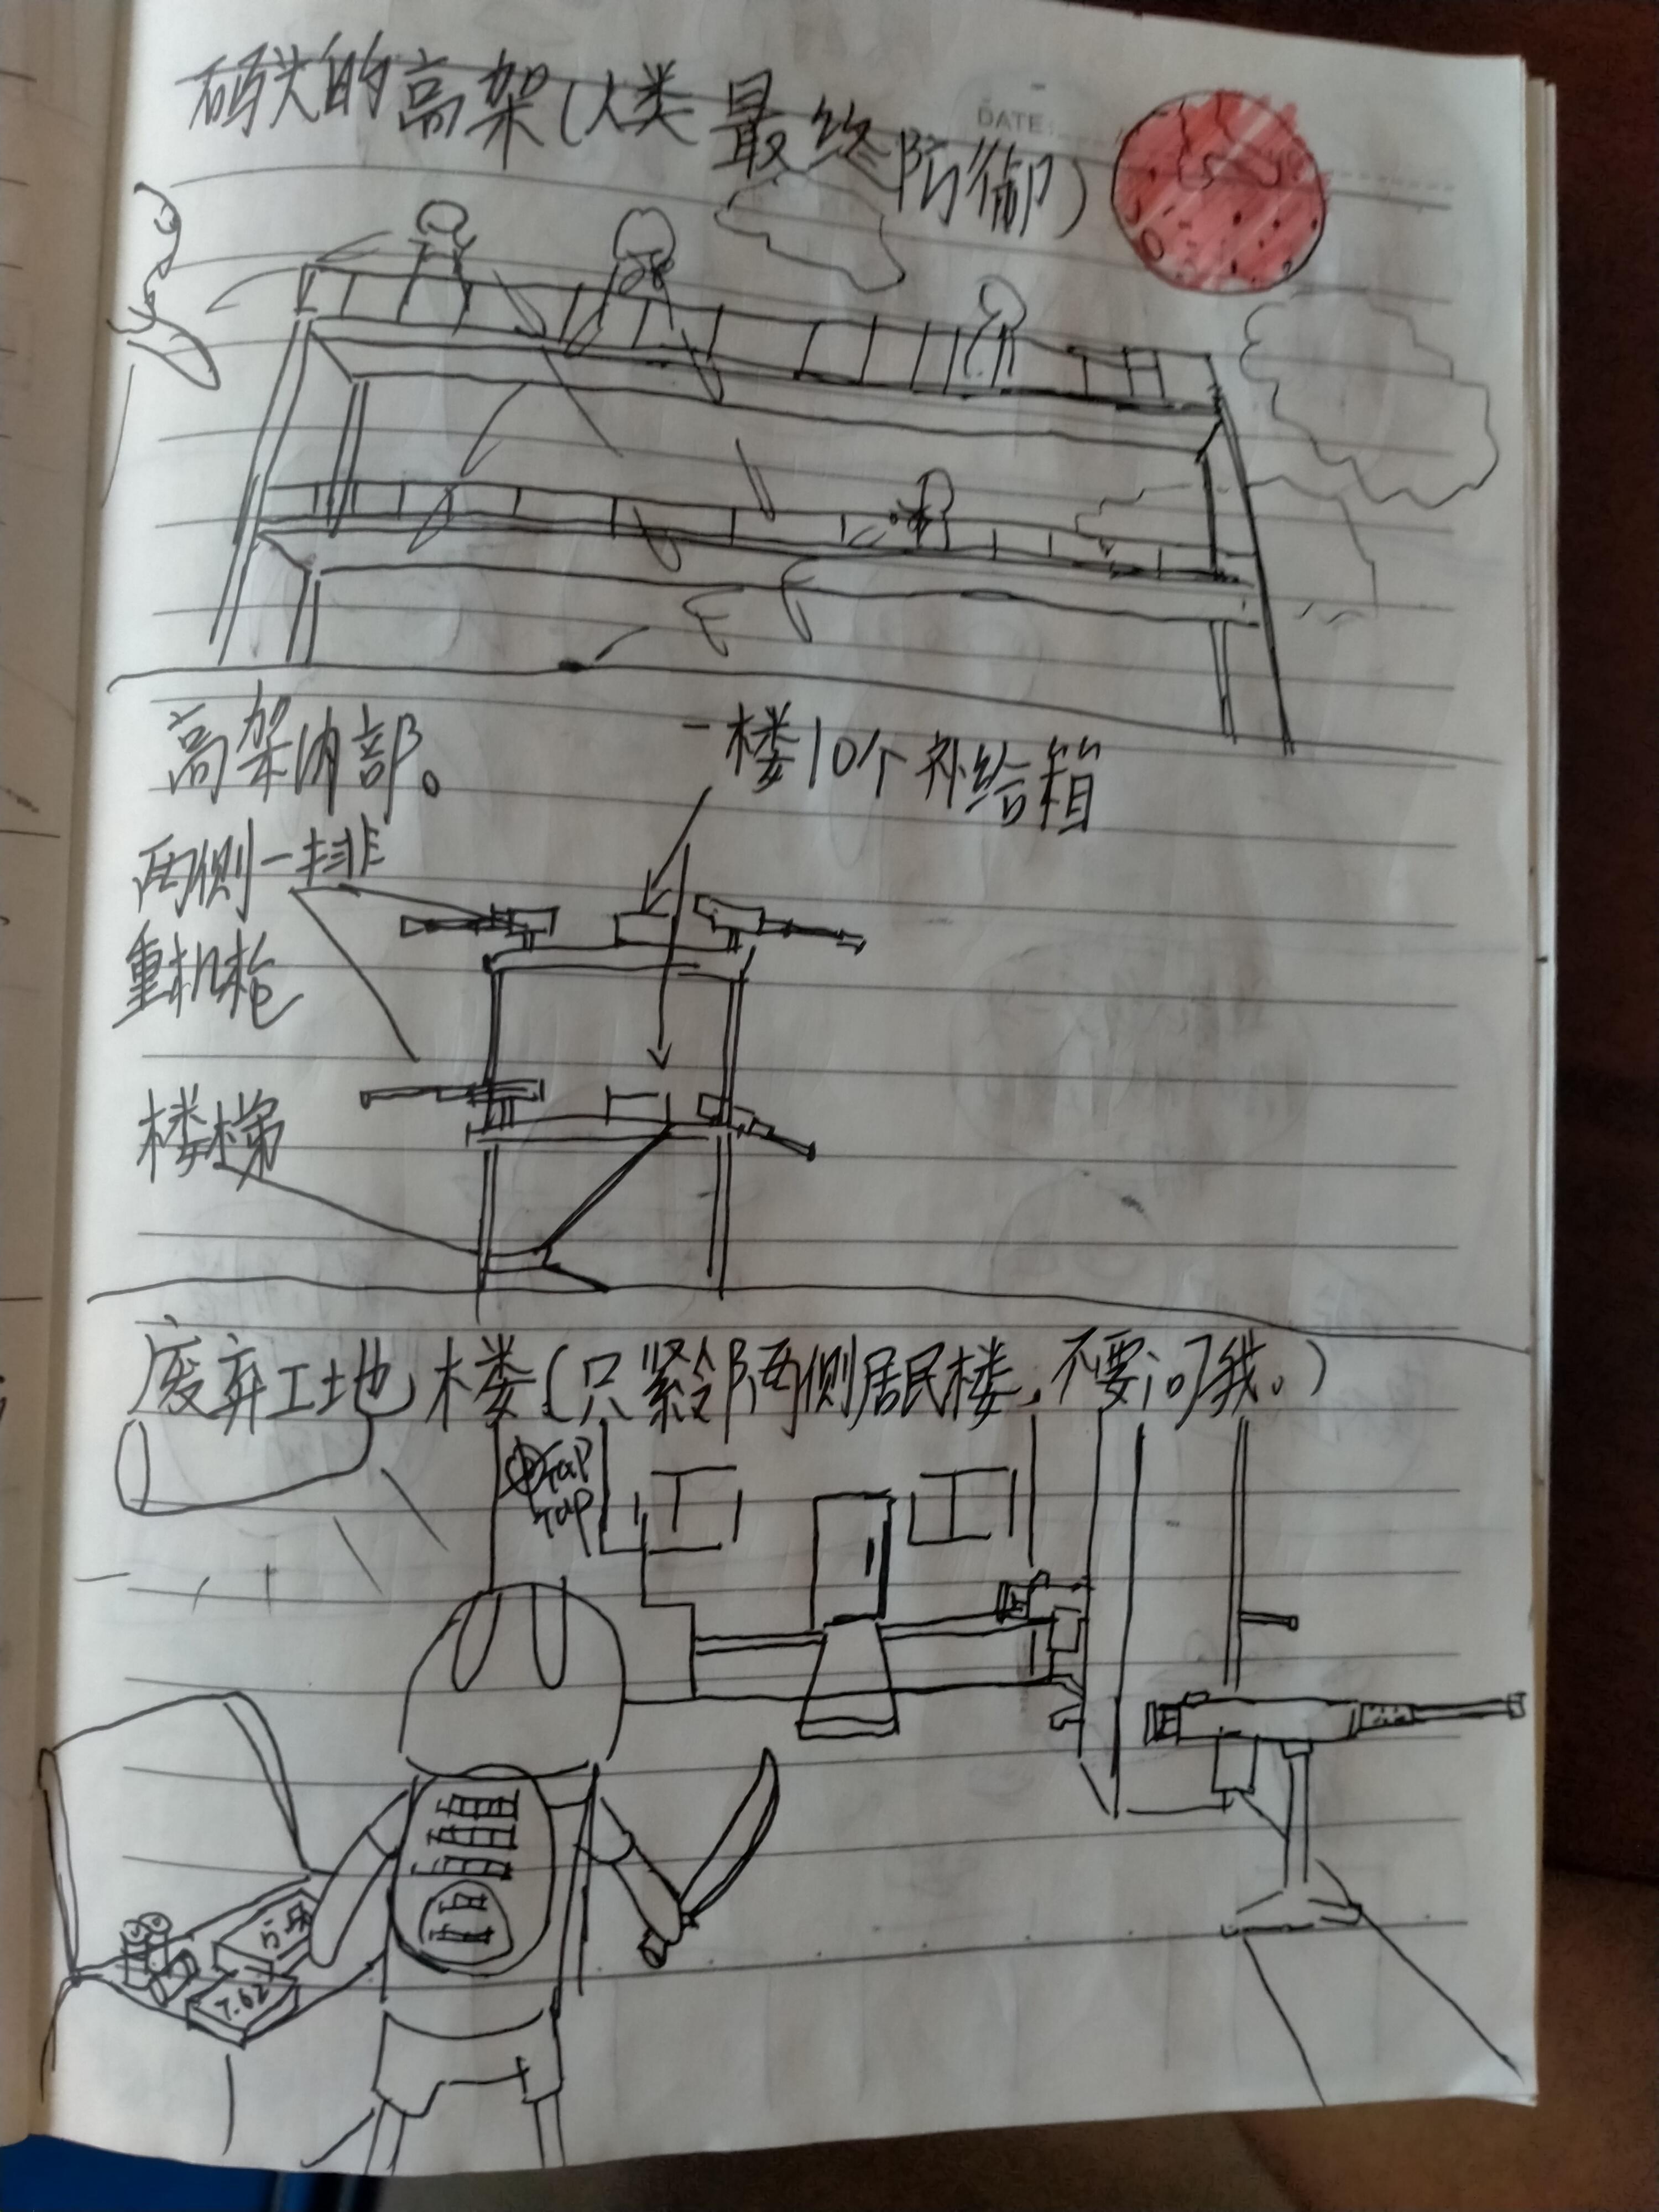 硕大的高架(人类最终防御)
DATE:
高架内部。
一楼10个补给箱
两侧一排
重机枪
楼梯
废弃工地楼(只紧邻两侧居民楼,不要问我。)
TaP
TaP
7.62